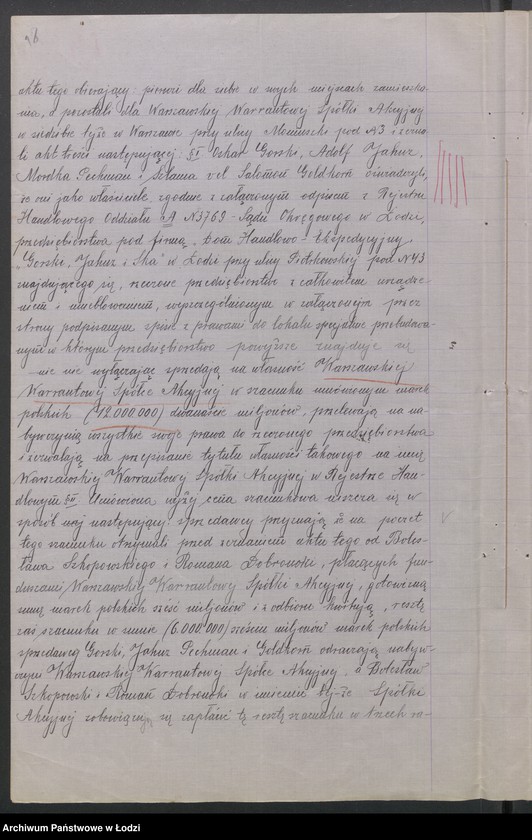 96
aktu tego obierający: pierwsi dla siebie w swych miejscach zamieszka-
nia, a pozostali dla Warszawskiej Warrantowej Spółki Akcyjnej
w siedzibie tejże w Warszawie przy ulicy pod N3 i zezna-
li akt treści następującej. §I Oskar Gorski, Adolf Jahuz,
Mordka Pechman i Szlama vel Salomon Goldhorn oświadczyli,
że oni jako właściciele, zgodnie z załączonym odpisem z Rejestru
Handlowego Oddziału A N3769 - Sądu Okręgowego w Łodzi,
przedsiębiorstwa pod firmą "Dom Handlowo-Ekspedycyjny,
"Gorski, Jahuz i Ska" w Łodzi przy ulicy Piotrkowskiej pod N43
znajdującego się, rzeczone przedsiębiorstwo z całkowitem urządze-
niem i umeblowaniem, wyszczególnionym w załączonym przez
strony podpisanym spisie z prawami do lokalu specjalnie przebudowa-
nym w którym przedsiębiorstwo powyższe znajduje się
nic nie wyłączając sprzedają na własność Warszawskiej
Warrantowej Spółce Akcyjnej w szacunku umówionym marek
polskich (12.000.000) dwanaście miljonów, przelewają na na-
bywczynię wszystkie swoje prawa do rzeczonego przedsiębiorstwa
i zezwalają na przepisanie tytułu własności takowego na imię
Warszawskiej Warrantowej Spółki Akcyjnej w Rejestrze Han-
dlowym §II Umówiona wyżej cena szacunkowa uiszcza się w
sposób następujący: sprzedawcy przyznają iż na poczet
tego szacunku otrzymali przed zeznaniem aktu tego od Boles-
ława Szkopowskiego i Romana Dobrowski, płacących fun-
duszami Warszawskiej Warrantowej Spółki Akcyjnej, gotowizną
sumę marek polskich sześć miljonów i z odbioru kwitują, resztę
zaś szacunku w sumie (6.000.000) sześciu miljonów marek polskich
sprzedawcy Gorski, Jahuz Pechman i Goldhorn odraczają nabyw-
czyni Warszawskiej Warrantowej Spółce Akcyjnej, a Bolesław
Szkopowski i Roman Dobrowski w imieniu tej-że Spółki
Akcyjnej zobowiązują się zapłacić tę resztę szacunku w trzech ra-
Archiwum Państwowe w Łodzi